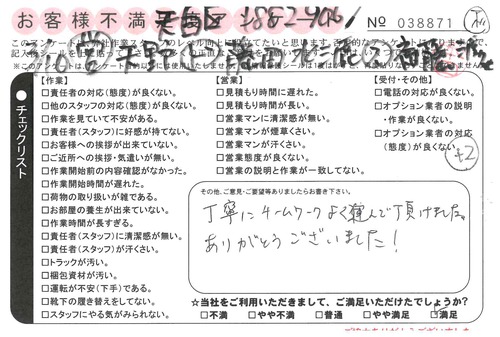 お客様不満
天白区
1882-4061
No 038871
チェックリスト
【作業】
□責任者の対応(態度)が良くない。
□他のスタッフの対応(態度)が良くない。
□作業を見ていて不安がある。
□責任者(スタッフ)に好感が持てない。
□お客様への挨拶が出来ていない。
□ご近所への挨拶・気遣いが無い。
□作業開始前の内容確認がなかった。
□作業開始時間が遅れた。
□荷物の取り扱いが雑である。
□お部屋の養生が出来ていない。
□作業時間が長すぎる。
□責任者(スタッフ)に清潔感が無い。
□責任者(スタッフ)が汗くさい。
□トラックが汚い。
□梱包資材が汚い。
□運転が不安(下手)である。
□靴下の履き替えをしてない。
□スタッフにやる気がみられない。
【営業】
□見積もり時間に遅れた。
□見積もり時間が長い。
□営業マンに清潔感が無い。
□営業マンが煙草くさい。
□営業マンが汗くさい。
□営業態度が良くない。
□営業の説明と作業が一致してない。
【受付・その他】
□電話の対応が良くない。
□オプション業者の説明
・作業が良くない。
□オプション業者の対応
(態度)が良くない。
+2
その他、ご意見・ご要望等ありましたらお書き下さい。
丁寧にチームワークよく運んで頂けました。
ありがとうございました!
☆当社をご利用いただきまして、ご満足いただけたでしょうか?
□不満 □やや不満 □普通 □やや満足 □満足